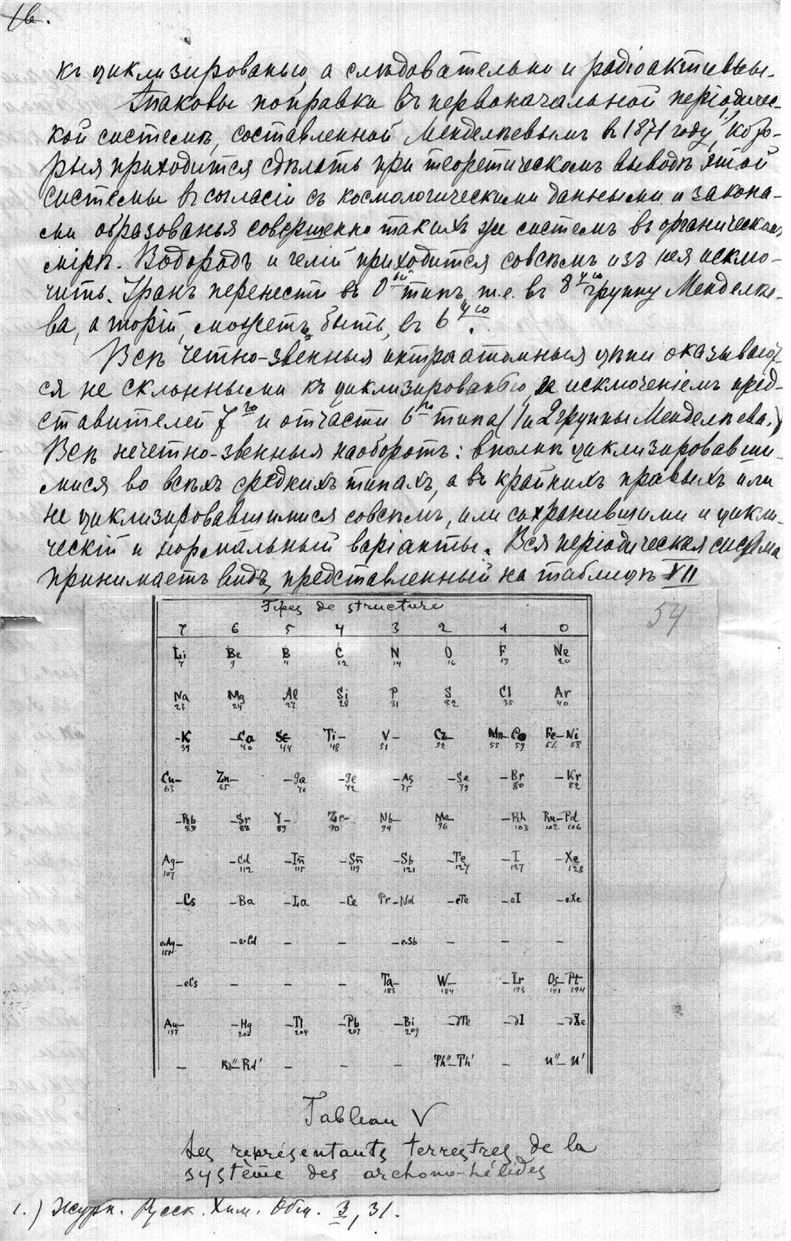 16.
къ циклизированью а слѣдовательно и радіоактивны.
Таковы поправки въ первоначальной періодичес-
кой системѣ, составленной Менделѣевымъ в 1871 году,¹⁾ кото-
рыя приходится сдѣлать при теоретическомъ выводѣ этой
системы в согласіи съ космологическими данными и закона-
ми образованья совершенно такихъ же системъ въ органическомъ
мірѣ. Водородъ и гелій приходится совсѣмъ изъ нея исклю-
чить. Уранъ перенести въ 0вой типъ, т.е. въ 8ую группу Менделѣе-
ва, а торій, можетъ быть, въ 6ую.
Всѣ четно-звенныя интраатомныя цѣпи оказывают-
ся не склонными къ циклизированью, за исключеніемъ пред-
ставителей 7го и отчасти 6го типа (1 и 2 группы Менделѣева.)
Всѣ нечетно-звенныя наоборотъ: вполнѣ циклизировавши-
мися во всѣхъ среднихъ типахъ, а въ крайнихъ правыхъ или
не циклизировавшимися совсѣмъ, или сохранившими и цикли-
ческій и нормальный варіанты. Вся періодическая система
принимаетъ видъ, представленный на таблицѣ XII
54
Types de structure
7 6 5 4 3 2 1 0
Li 7 Be 9 B 11 C 12 N 14 O 16 F 19 Ne 20
Na 23 Mg 24 Al 27 Si 28 P 31 S 32 Cl 35 Ar 40
-K 39 -Ca 40 Sc 44 Ti- 48 V- 51 Cr 52 Mn-Co 55 59 Fe-Ni 56 58
Cu- 63 Zn- 65 -Ga 70 -Ge 72 -As 75 -Se 79 -Br 80 -Kr 82
-Rb 85 -Sr 88 Y- 89 Zr- 90 Nb- 94 Mo- 96 -Rh 103 Ru-Pd 102 106
Ag- 107 -Cd 112 -In 115 -Sn 119 -Sb 121 -Te 127 -I 127 -Xe 128
-Cs -Ba -La -Ce Pr-Nd -eTe -eI -eXe
eAg- -eCd - - -eSb - - -
-eCs - - - Ta- 183 W- 184 -Ir 193 Os-Pt 191 194
Au- 197 -Hg -Tl 204 -Pb 207 -Bi 209 -dTe -dI -dXe
- Rd"-Rd' - - - Th"-Th' - U"-U'
Tableau V
Les représentants terrestres de la
système des archono-hélides
1.) Журн. Русск. Хим. Общ. 3, 31.